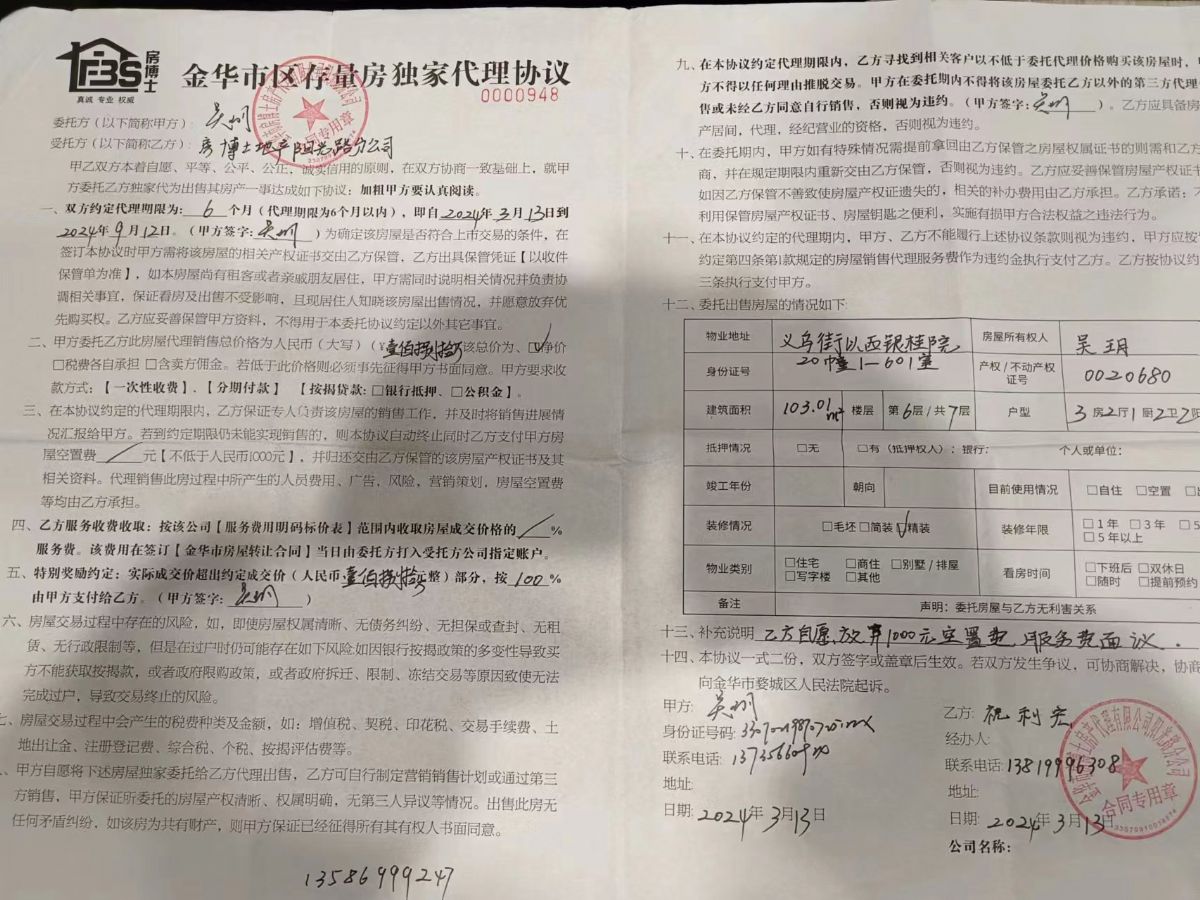 FBS
房博士
真诚 专业 权威
金华市区存量房独家代理协议
0000948
委托方（以下简称甲方）：
受托方（以下简称乙方）：房博士地产阳光路分公司
甲乙双方本着自愿、平等、公平、公正、诚实信用的原则，在双方协商一致基础上，就甲
方委托乙方独家代为出售其房产一事达成如下协议：加粗甲方要认真阅读。
一、双方约定代理期限为：6个月（代理期限为6个月以内），即自2024年3月13日到
2024年9月12日。（甲方签字：）为确定该房屋是否符合上市交易的条件，在
签订本协议时甲方需将该房屋的相关产权证书交由乙方保管，乙方出具保管凭证【以收件
保管单为准】，如本房屋尚有租客或者亲戚朋友居住，甲方需同时说明相关情况并负责协
调相关事宜，保证看房及出售不受影响，且现居住人知晓该房屋出售情况，并愿意放弃优
先购买权。乙方应妥善保管甲方资料，不得用于本委托协议约定以外其它事宜。
二、甲方委托乙方此房屋代理销售总价格为人民币（大写）（¥壹佰捌拾万该总价为、☑净价
□税费各自承担 □含卖方佣金。若低于此价格则必须事先征得甲方书面同意。甲方要求收
款方式：【一次性收费】、【分期付款】 【按揭贷款：□银行抵押、□公积金】。
三、在本协议约定的代理期限内，乙方保证专人负责该房屋的销售工作，并及时将销售进展情
况汇报给甲方。若到约定期限仍未能实现销售的，则本协议自动终止同时乙方支付甲方房
屋空置费 / 元【不低于人民币1000元】，并归还交由乙方保管的该房屋产权证书及其
相关资料。代理销售此房过程中所产生的人员费用、广告，风险，营销策划，房屋空置费
等均由乙方承担。
四、乙方服务收费收取：按该公司【服务费用明码标价表】范围内收取房屋成交价格的 / %
服务费。该费用在签订【金华市房屋转让合同】当日由委托方打入受托方公司指定账户。
五、特别奖励约定：实际成交价超出约定成交价（人民币壹佰捌拾万元整）部分，按100%
由甲方支付给乙方。（甲方签字：）
六、房屋交易过程中存在的风险，如，即使房屋权属清晰、无债务纠纷、无担保或查封、无租
赁、无行政限制等，但是在过户时仍可能存在如下风险:如因银行按揭政策的多变性导致买
方不能获取按揭款，或者政府限购政策，或者政府拆迁、限制、冻结交易等原因致使无法
完成过户，导致交易终止的风险。
七、房屋交易过程中会产生的税费种类及金额，如：增值税、契税、印花税、交易手续费、土
地出让金、注册登记费、综合税、个税、按揭评估费等。
、甲方自愿将下述房屋独家委托给乙方代理出售，乙方可自行制定营销销售计划或通过第三
方销售，甲方保证所委托的房屋产权清晰、权属明确，无第三人异议等情况。出售此房无
任何矛盾纠纷，如该房为共有财产，则甲方保证已经征得所有其有权人书面同意。
13586999247
九、在本协议约定代理期限内，乙方寻找到相关客户以不低于委托代理价格购买该房屋时，甲
方不得以任何理由推脱交易。甲方在委托期内不得将该房屋委托乙方以外的第三方代理
售或未经乙方同意自行销售，否则视为违约。（甲方签字：）。乙方应具备房
产居间，代理，经纪营业的资格，否则视为违约。
十、在委托期内，甲方如有特殊情况需提前拿回由乙方保管之房屋权属证书的则需和乙方
商，并在规定期限内重新交由乙方保管，否则视为违约。乙方应妥善保管房屋产权证书
如因乙方保管不善致使房屋产权证遗失的，相关的补办费用由乙方承担。乙方承诺：不
利用保管房屋产权证书、房屋钥匙之便利，实施有损甲方合法权益之违法行为。
十一、在本协议约定的代理期内，甲方、乙方不能履行上述协议条款则视为违约，甲方应按
约定第四条第1款规定的房屋销售代理服务费作为违约金执行支付乙方。乙方按协议约
三条执行支付甲方。
十二、委托出售房屋的情况如下：
物业地址 义乌街以西银桂院 房屋所有权人 吴玥
身份证号 20幢1-601室 产权/不动产权证号 0020680
建筑面积 103.01m² 楼层 第6层/共7层 户型 3房2厅1厨2卫2阳
抵押情况 □无 □有（抵押权人）：银行： 个人或单位：
竣工年份 朝向 目前使用情况 □自住 □空置
装修情况 □毛坯 □简装 ☑精装 装修年限 □1年 □3年 □5
□5年以上
物业类别 □住宅 □商住 □别墅/排屋 看房时间 □下班后 □双休日
□写字楼 □其他 □随时 □提前预约
备注 声明：委托房屋与乙方无利害关系
十三、补充说明 乙方自愿放弃1000元空置费，服务费面议.
十四、本协议一式二份，双方签字或盖章后生效。若双方发生争议，可协商解决，协商
向金华市婺城区人民法院起诉。
甲方：
身份证号码：
联系电话：
地址：
日期：2024年3月13日
乙方：祝利宏
经办人：
联系电话：13819996308
地址：
日期：2024年3月13日
公司名称：
合同专用章